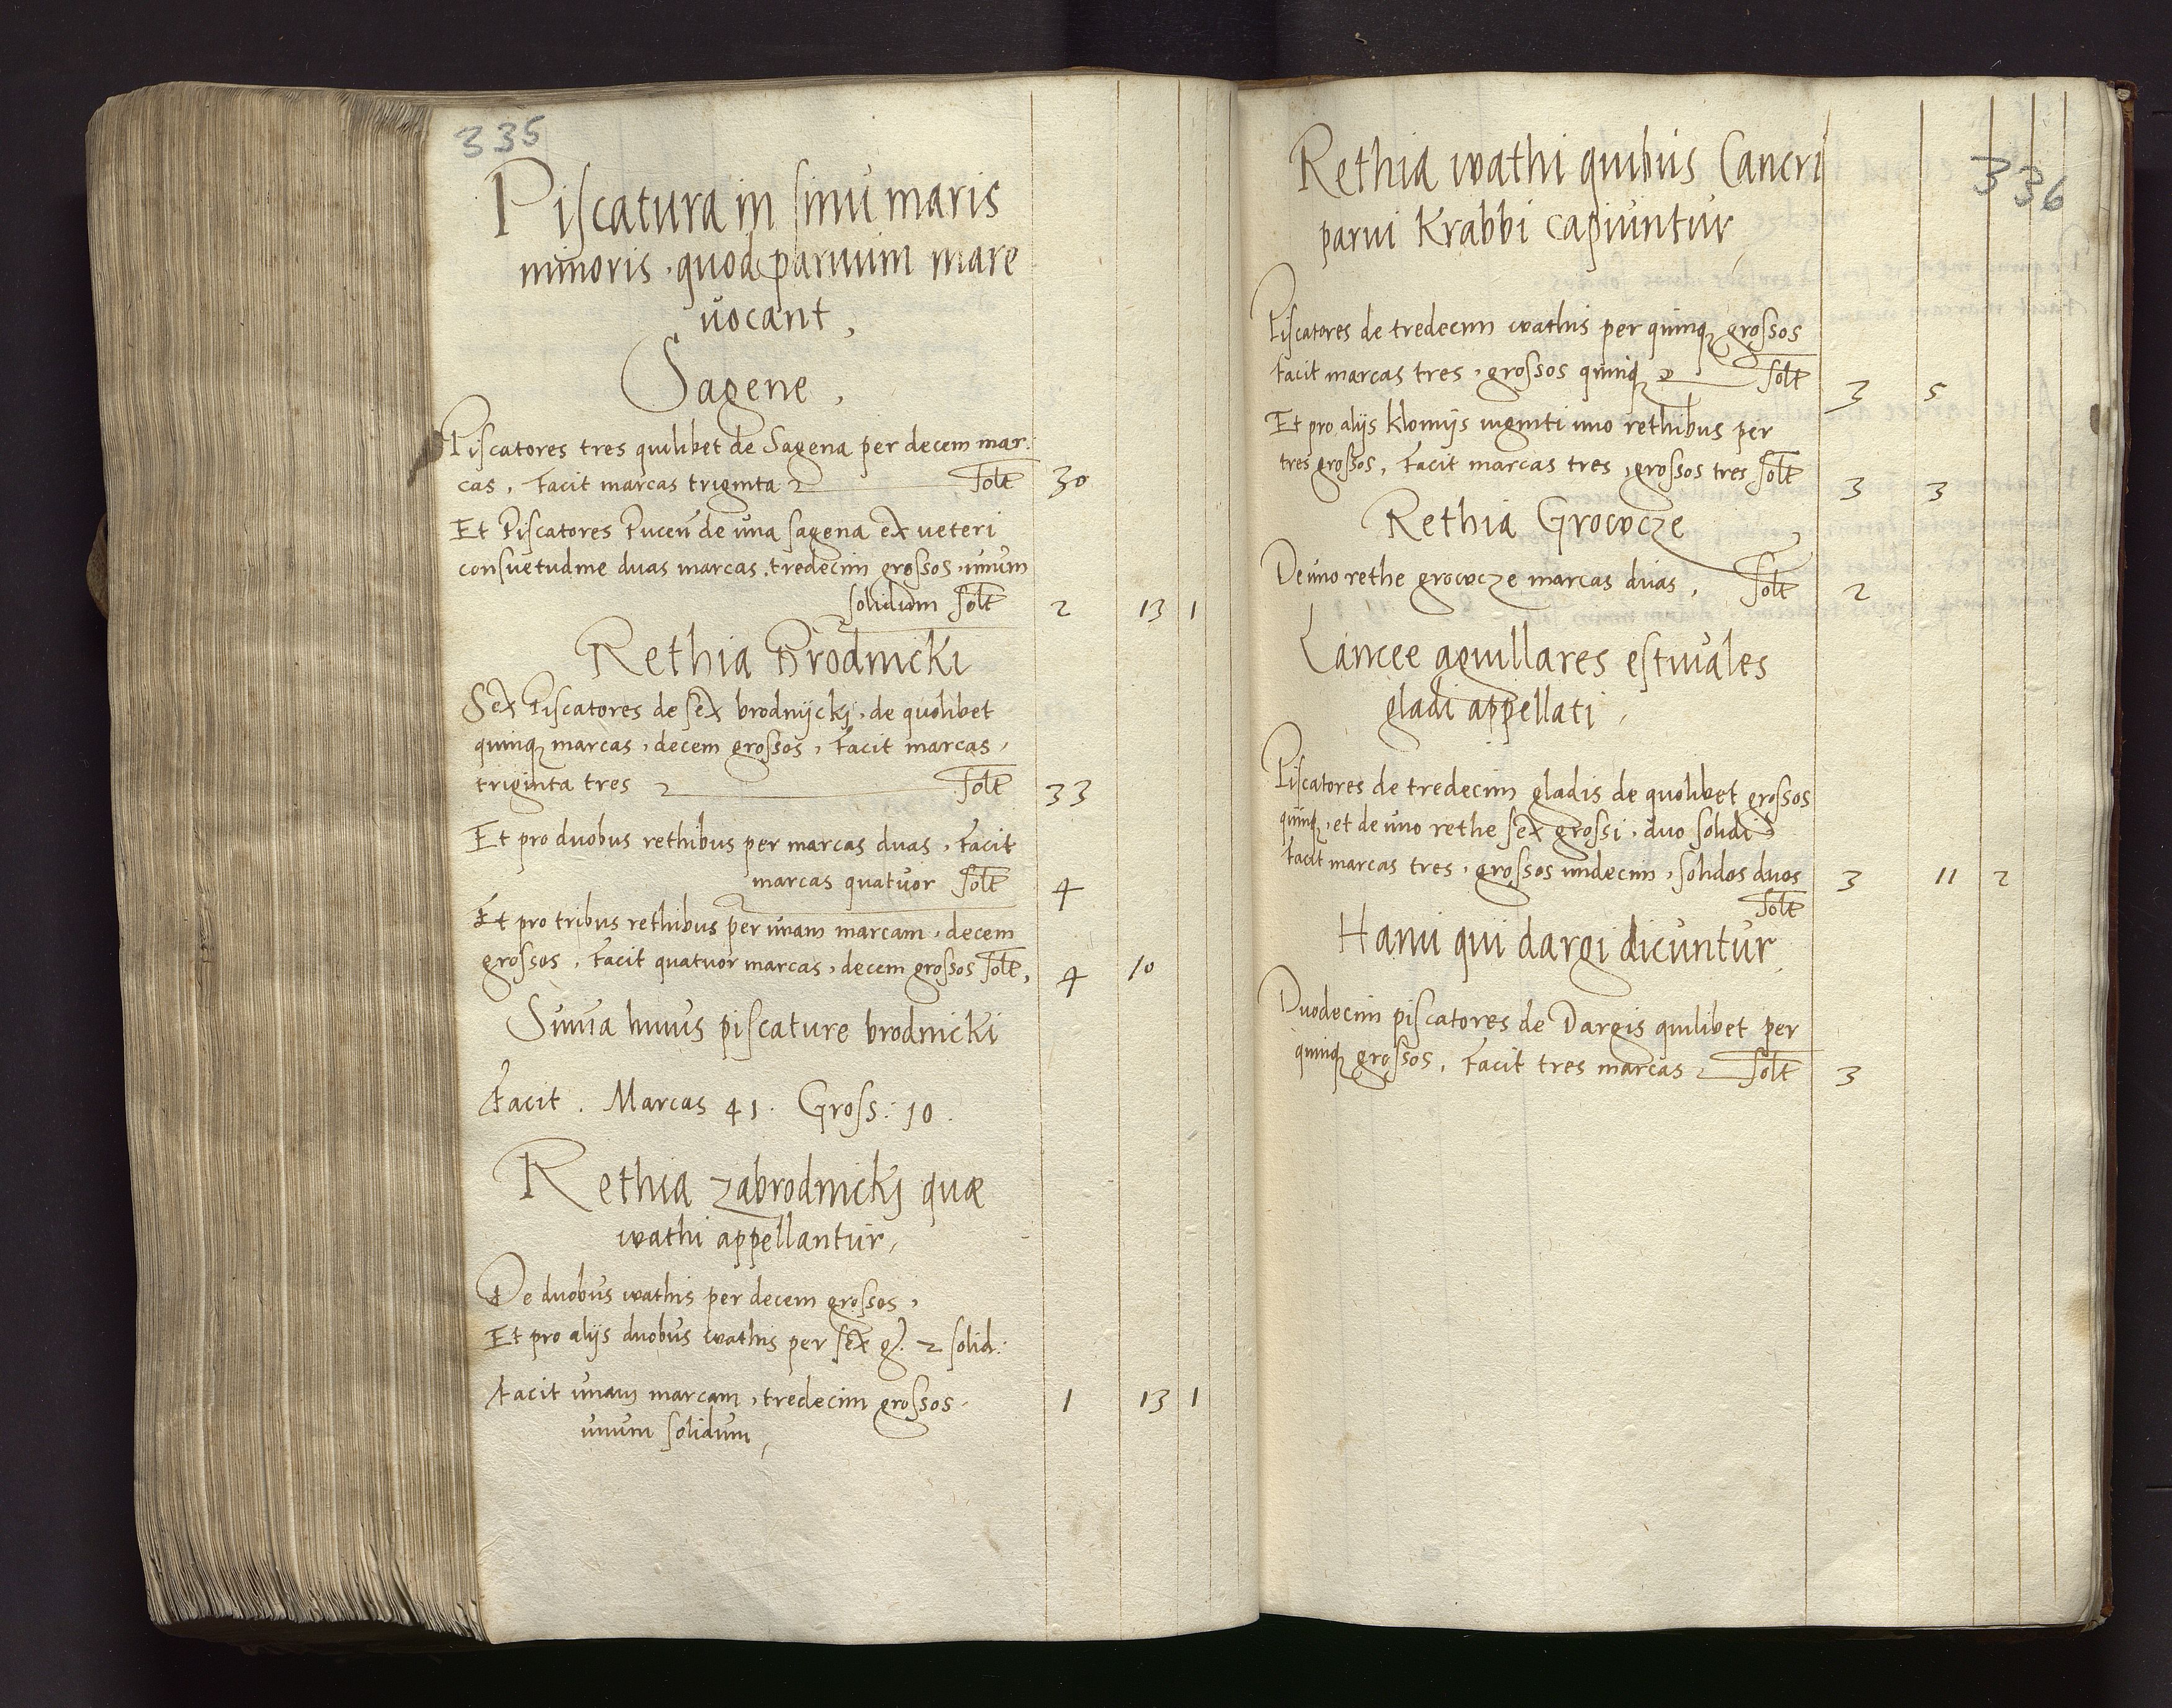 335
Piscatura in sinu maris
minoris, quod parvum mare
vocant,
Sagene,
Piscatores tres quilibet de Sagena per decem mar:
cas, facit marcas triginta solt 30
Et Piscatores Pucen̄ de una sagena ex veteri
consuetudine duas marcas, tredecim grossos, unum
solidum solt 2 13 1
Rethia Brodnicki
Sex Piscatores de sex brodnijckj, de quolibet
quinq̨ marcas, decem grossos, facit marcas,
triginta tres solt 33
Et pro duobus rethibus per marcas duas, facit
marcas quatuor solt 4
Et pro tribus rethibus per unam marcam, decem
grossos, facit quatuor marcas, decem grossos solt, 4 10
Sum̄a huius piscature brodnicki
facit. Marcas 41. Gross: 10.
Rethia zabrodnickj quæ
wathi appellantur,
De duobus wathis per decem grossos,
Et pro alijs duobus wathis per sex gͬ. 2 solid:
facit unam marcam, tredecim grossos, 1 13 1
unum solidum,
336
Rethia wathi quibus Cancri
parvi Krabbi capiuntur,
Piscatores de tredecim wathis per quinq̨ grossos
facit marcas tres, grossos quinq̨ solt 3 5
Et pro alijs klomijs viginti uno rethibus per
tres grossos, facit marcas tres, grossos tres solt 3 3
Rethia Growcze
De uno rethe growcze marcas duas, solt 2
Lancee aguillares estivales
gladi appellati,
Piscatores de tredecim gladis de quolibet grossos
quinq̨, et de uno rethe sex grossi, duo solidi
facit marcas tres, grossos undecim, solidos duos 3 11 2
solt
Hami qui dargi dicuntur
Duodecim piscatores de Dargis quilibet per
quinq̨ grossos, facit tres marcas solt 3